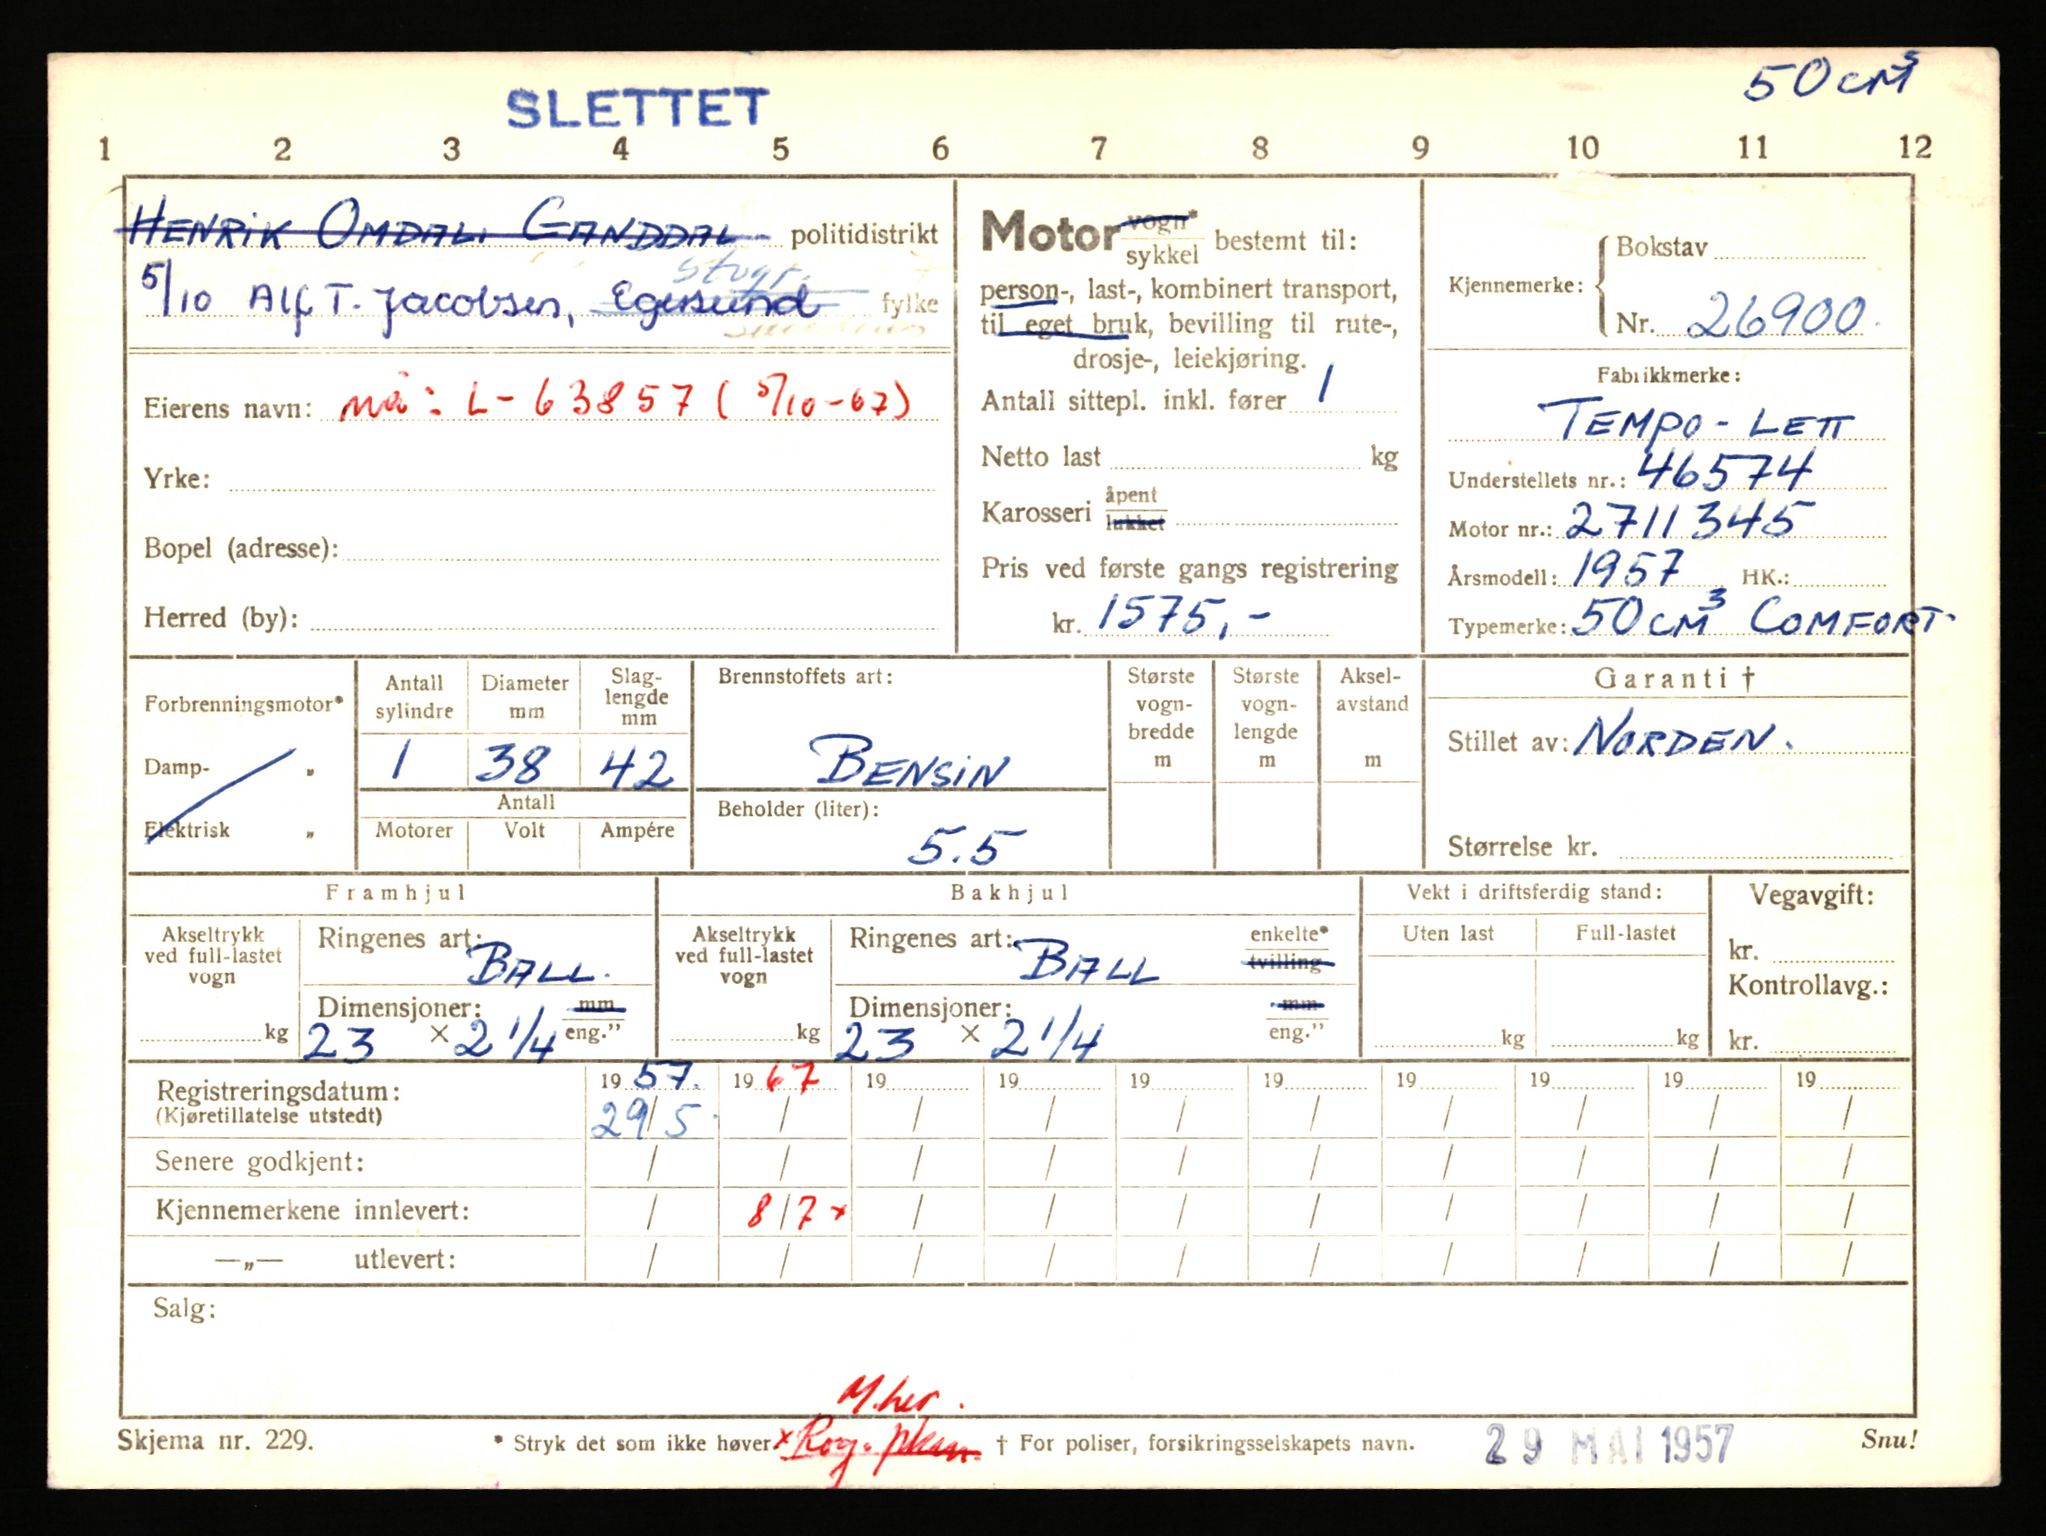 50 cm³
SLETTET
1 2 3 4 5 6 7 8 9 10 11 12
HENRIK OMDAL. GANDDAL politidistrikt
5/10 Alf T. Jacobsen, Egersund fylke
Eierens navn: nå: L-63857 (5/10-67)
Yrke:
Bopel (adresse):
Herred (by):
Motor vogn* sykkel bestemt til:
person-, last-, kombinert transport,
til eget bruk, bevilling til rute-,
drosje-, leiekjøring.
Antall sittepl. inkl. fører 1
Netto last kg
Karosseri åpent lukket
Pris ved første gangs registrering
kr. 1575,-
Kjennemerke: Bokstav
Nr. 26900.
Fabrikkmerke:
TEMPO - LETT
Understellets nr.: 46574
Motor nr.: 2711345
Årsmodell: 1957 HK.:
Typemerke: 50 CM³ COMFORT.
Forbrenningsmotor*
Damp- „
Elektrisk „
Antall sylindre Diameter mm Slag-lengde mm
1 38 42
Antall
Motorer Volt Ampére
Brennstoffets art:
BENSIN
Beholder (liter):
5.5
Største vogn-bredde m
Største vogn-lengde m
Aksel-avstand m
Garanti †
Stillet av: NORDEN.
Størrelse kr.
Framhjul
Akseltrykk ved full-lastet vogn
kg
Ringenes art: BALL.
Dimensjoner: mm eng."
23 × 2 1/4
Bakhjul
Akseltrykk ved full-lastet vogn
kg
Ringenes art: BALL enkelte* tvilling
Dimensjoner: mm eng."
23 × 2 1/4
Vekt i driftsferdig stand:
Uten last Full-lastet
kg kg
Vegavgift:
kr.
Kontrollavg.:
kr.
Registreringsdatum: 19 57. 19 67 19 19 19 19 19 19 19 19
(Kjøretillatelse utstedt) 29/5 / / / / / / / / /
Senere godkjent: / / / / / / / / / /
Kjennemerkene innlevert: / 8/7 × / / / / / / / /
—„— utlevert: / / / / / / / / / /
Salg:
M.her.
Skjema nr. 229. * Stryk det som ikke høver × † For poliser, forsikringsselskapets navn. 29 MAI 1957 Snu!